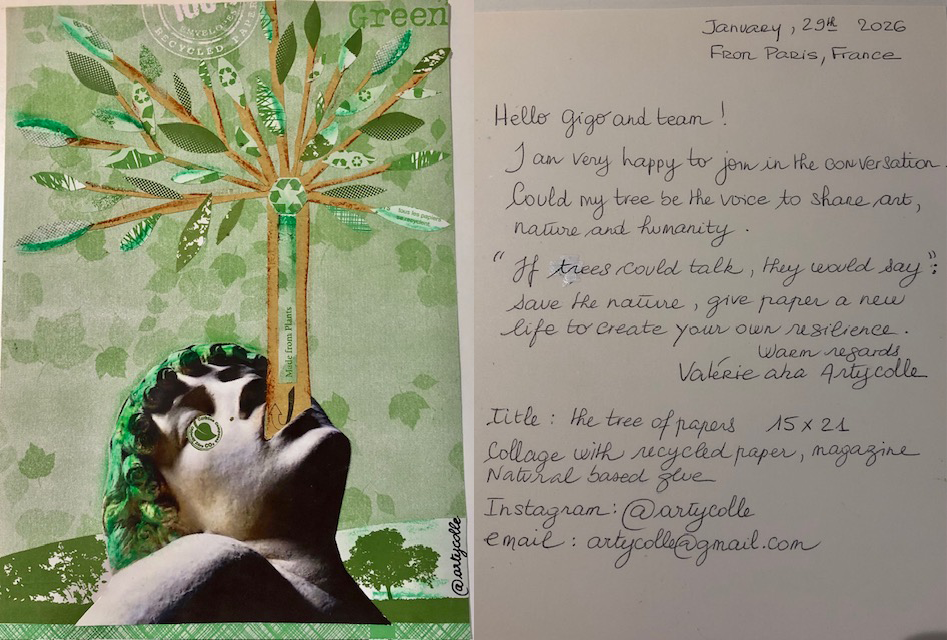 100%
ENVELOPES
RECYCLED PAPER
Green
tous les papiers
se recyclent
Made from Plants
@artycolle
January, 29th 2026
Fron Paris, France
Hello Gigo and team !
I am very happy to join in the conversation.
Could my tree be the voice to share art,
nature and humanity.
"If trees could talk, they would say":
save the nature, give paper a new
life to create your own resilience.
Warm regards
Valérie aka Artycolle
Title : the tree of papers 15 x 21
Collage with recycled paper, magazine
Natural based glue
Instagram : @artycolle
email : artycolle@gmail.com